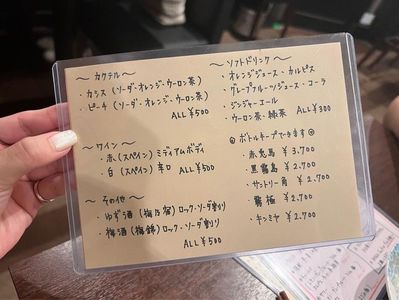 〜 カクテル 〜
・カシス (ソーダ・オレンジ・ウーロン茶)
・ピーチ (ソーダ・オレンジ・ウーロン茶)
ALL ¥500
〜 ワイン 〜
・赤 (スペイン) ミディアムボディ
・白 (スペイン) 辛口
ALL ¥500
〜 その他 〜
・ゆず酒 (梅乃宿) ロック・ソーダ割り
・梅酒 (梅錦) ロック・ソーダ割り
ALL ¥500
〜 ソフトドリンク 〜
・オレンジジュース・カルピス
・グレープフルーツジュース・コーラ
・ジンジャーエール
・ウーロン茶・緑茶
ALL ¥300
◎ ボトルキープできます ◎
・赤兎馬 ¥3,700
・黒霧島 ¥2,700
・サントリー角 ¥2,700
・ ¥2,700
・キンミヤ ¥2,700